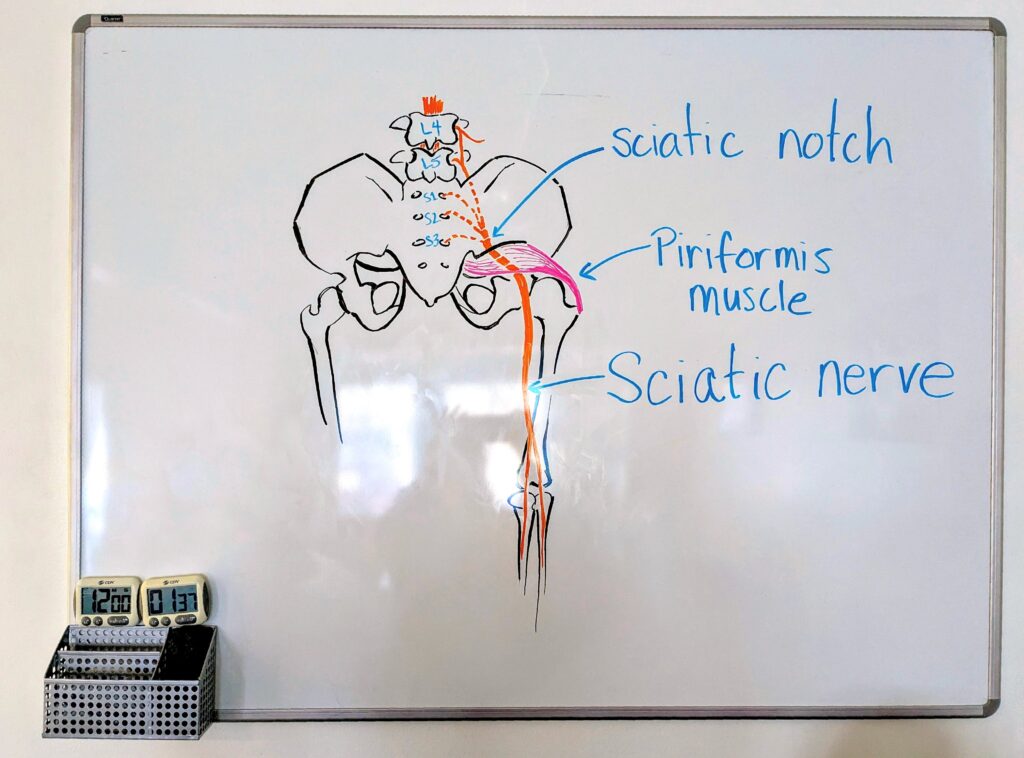 L4
L5
S1
S2
S3
sciatic notch
Piriformis
muscle
Sciatic nerve
CDN CDN
12 00 01 37